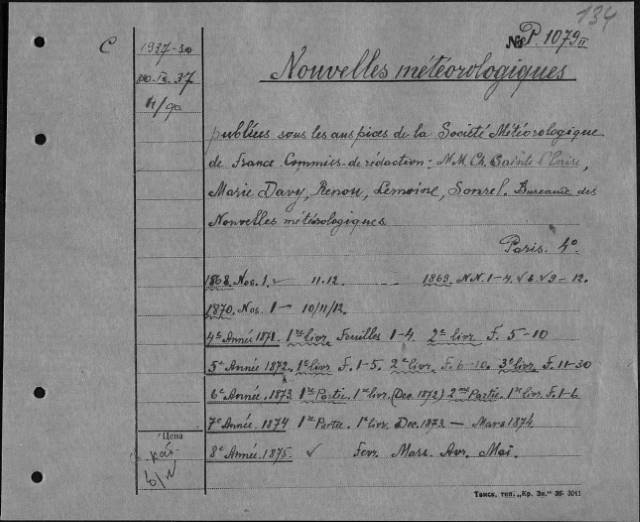 134
C
1937-30
№ P. 1079 II
37
Nouvelles météorologiques
publiées sous les auspices de la Société Météorologique
de France. Commiss. de rédaction: M.M. Ch. Sainte-Claire,
Marie Davy, Renou, Lemoine, Sonrel. Bureaux des
Nouvelles météorologiques
Paris. 4°.
1868. Nos. 1. 11.12. 1869. N.N. 1-4. 9-12.
1870. Nos. 1 — 10/11/12.
4e Année 1871. 1re livr. Feuilles 1-4. 2e livr. F. 5-10
5e Année 1872. 1e livr. F. 1-5. 2e livr. F. 6-10. 3e livr. F. 11-30
6e Année. 1873 1re Partie. 1re livr. (Dec. 1872) 2me Partie. 1re livr. F. 1-6
7e Année. 1874 1re Partie. 1e livr. Dec. 1873 — Mars 1874
Цена
8e Année. 1875. √ Fevr. Mars. Avr. Mai.
Б/Ц
Томск, тип. „Кр. Зн.“ 36- 3041